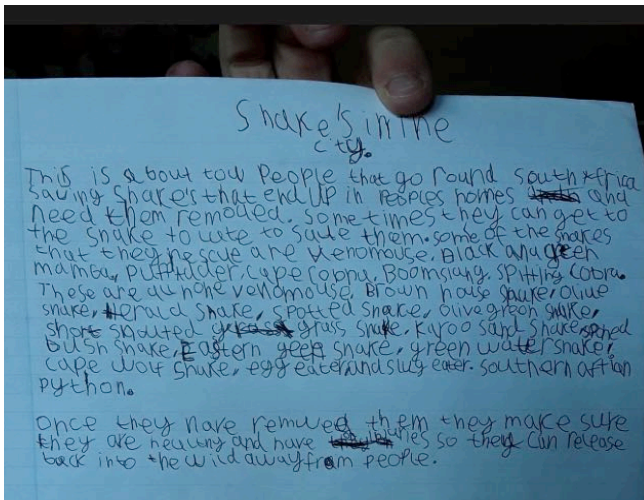 Snake's in the
city.
This is about tow People that go round south Africa
saving snake's that end up in peoples homes and
need them remoded. Sometimes they can get to
the snake to late to save them. some of the snakes
that they rescue are venomouse. Black and green
mamba, puff adder, Cape Coppa, Boomslang, spitting cobra.
These are all none venomouse, Brown house snake, olive
snake, Herald snake, spotted snake, olive green snake,
short snouted grass snake, Karoo sand snake, spotted
bush snake, Eastern green snake, green water snake,
cape wolf snake, egg eater, and slug eater. southern african
python.
Once they have removed them they make sure
they are healthy and have so they can release
back into the wild away from people.